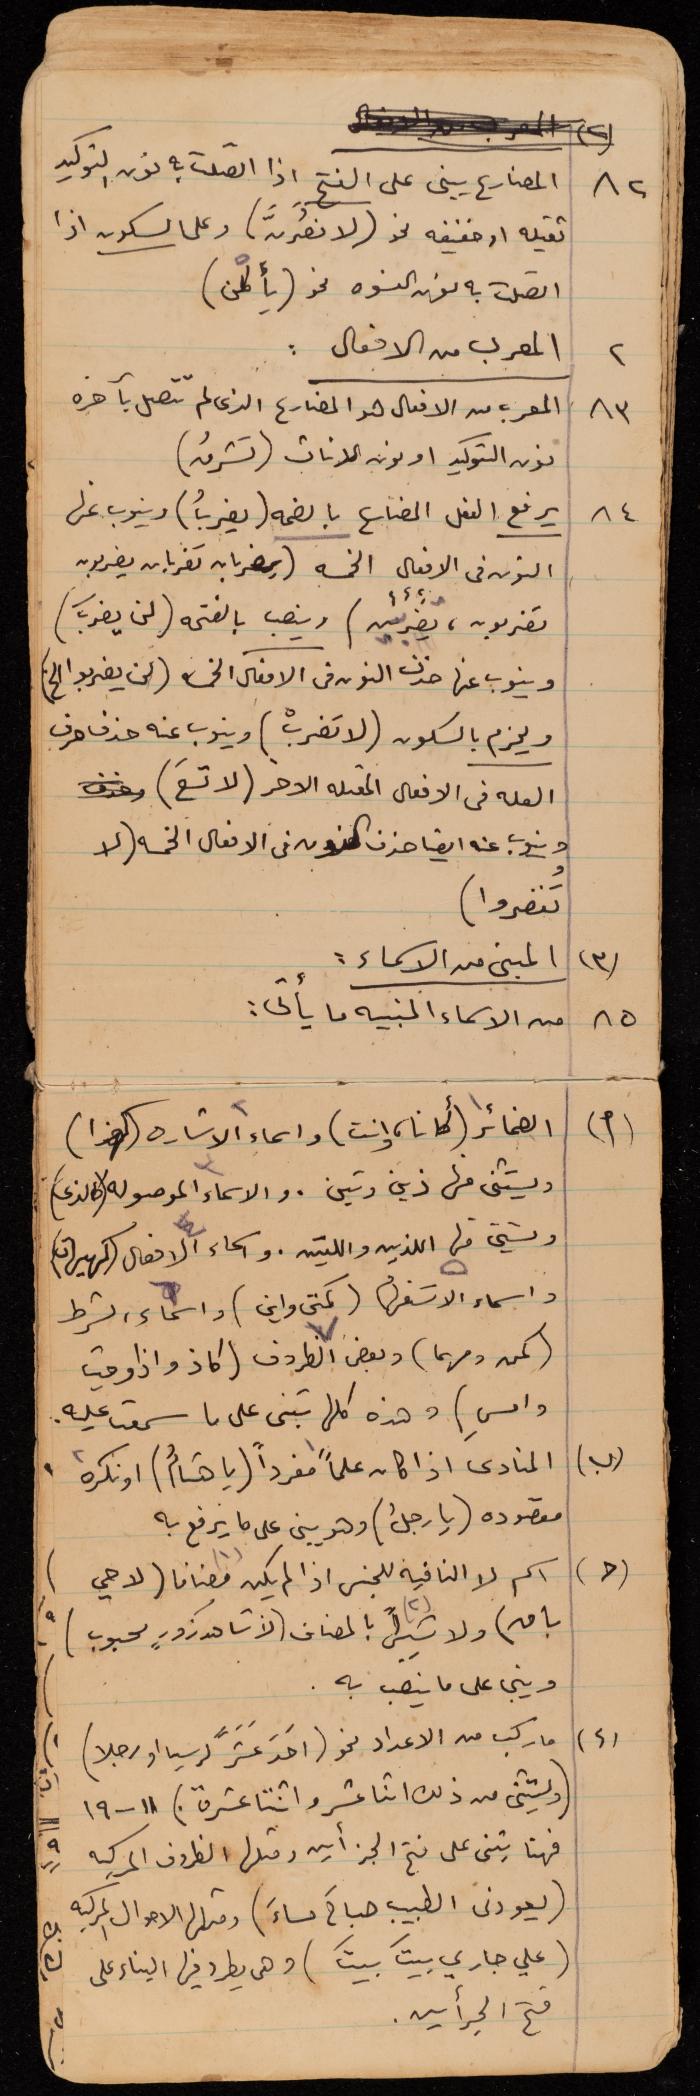 (٢) المعرب من الافعال
٨٢ المضارع يبنى على الفتح اذا اتصلت به نون التوكيد
ثقيله او خفيفه نحو (لا تضربنَّ) وعلى السكون اذا
اتصلت به نون النسوه نحو (يأكلن)
٢ المعرب من الافعال :
٨٣ المعرب من الافعال هو المضارع الذى لم تتصل بآخره
نون التوكيد او نون الاناث (تشربُ)
٨٤ يرفع الفعل المضارع بالضمه (يضربُ) وينوب عنها
النون فى الافعال الخمسه (يضربان تضربان يضربون
تضربون، تضربين) وينصب بالفتحه (لن يضربَ)
وينوب عنها حذف النون فى الافعال الخمسه (لن يضربوا الخ)
ويجزم بالسكون (لا تضربْ) وينوب عنه حذف حرف
العله فى الافعال المعتله الاخر (لا تسعَ) وحذف
وينوب عنه ايضا حذف النون فى الافعال الخمسه (لا
تنصروا)
(٣) المبنى من الاسماء :
٨٥ من الاسماء المبنيه ما يأتى:
(أ) الضمائر (كأنا، وانت) واسماء الاشاره (كهذا)
ويستثنى منها ذين وتين . والاسماء الموصوله (كالذى)
ويستثنى منها اللذين واللتين . واسماء الافعال (كهيهات)
واسماء الاستفهام (كمتى واين) واسماء الشرط
(كمن ومهما) وبعض الظروف (كاذ واذا وحيث
وامسِ) وهذه كلها تبنى على ما سمعت عليه.
(ب) المنادى اذا كان علماً مفرداً (يا هشامُ) او نكره
مقصوده (يا رجلُ) وهو يبنى على ما يرفع به
(حـ) اسم لا النافيه للجنس اذا لم يكن مضافا (لا حي
باق) ولا شبيهاً بالمضاف (لا شاهد زورٍ محبوب)
ويبنى على ما ينصب به .
(د) ما ركب من الاعداد نحو (احَدَ عَشَرَ كرسيا او رجلا)
(ويستثنى من ذلك اثنا عشر واثنتا عشرة) ١١ – ١٩
فهنا يبنى على فتح الجزأين ومثلها الظروف المركبه
(يعودنى الطبيب صباحَ مساءَ) ومثلها الاحوال المركبه
(علي جاري بيتَ بيتَ) وهى يطرد فيها البناء على
فتح الجزأين .